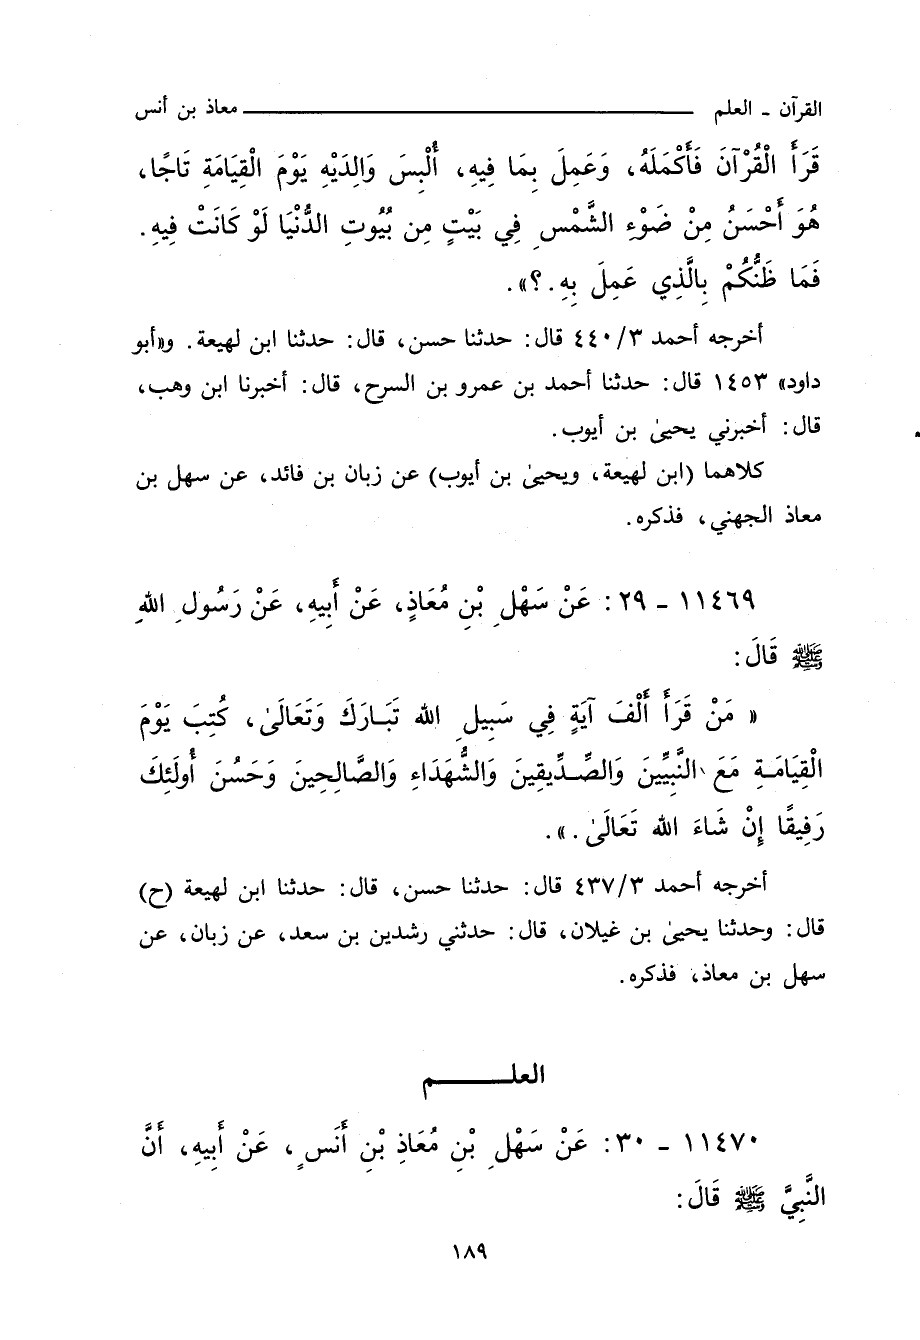 القرآن - العلم ــــــــــــــــــــــــــــــــــــ معاذ بن أنس
قَرَأَ الْقُرْآنَ فَأَكْمَلَهُ، وَعَمِلَ بِمَا فِيهِ، أُلْبِسَ وَالِدَيْهِ يَوْمَ الْقِيَامَةِ تَاجًا،
هُوَ أَحْسَنُ مِنْ ضَوْءِ الشَّمْسِ فِي بَيْتٍ مِن بُيُوتِ الدُّنْيَا لَوْ كَانَتْ فِيهِ.
فَمَا ظَنُّكُمْ بِالَّذِي عَمِلَ بِهِ.؟».
أخرجه أحمد ٤٤٠/٣ قال: حدثنا حسن، قال: حدثنا ابن لهيعة. و«أبو
داود» ١٤٥٣ قال: حدثنا أحمد بن عمرو بن السرح، قال: أخبرنا ابن وهب،
قال: أخبرني يحيىٰ بن أيوب.
كلاهما (ابن لهيعة، ويحيىٰ بن أيوب) عن زبان بن فائد، عن سهل بن
معاذ الجهني، فذكره.
١١٤٦٩ - ٢٩: عَنْ سَهْلِ بْنِ مُعَاذٍ، عَنْ أَبِيهِ، عَنْ رَسُولِ اللهِ
ﷺ قَالَ:
« مَنْ قَرَأَ أَلْفَ آيَةٍ فِي سَبِيلِ الله تَبَارَكَ وَتَعَالَىٰ، كُتِبَ يَوْمَ
الْقِيَامَةِ مَعَ النَّبِيِّينَ وَالصِّدِّيقِينَ وَالشُّهَدَاءِ وَالصَّالِحِينَ وَحَسُنَ أُولَئِكَ
رَفِيقًا إِنْ شَاءَ الله تَعَالَىٰ.».
أخرجه أحمد ٤٣٧/٣ قال: حدثنا حسن، قال: حدثنا ابن لهيعة (ح)
قال: وحدثنا يحيىٰ بن غيلان، قال: حدثني رشدين بن سعد، عن زبان، عن
سهل بن معاذ، فذكره.
العلـــــــم
١١٤٧٠ - ٣٠: عَنْ سَهْلِ بْنِ مُعَاذِ بْنِ أَنَسٍ، عَنْ أَبِيهِ، أَنَّ
النَّبِيَّ ﷺ قَالَ:
١٨٩